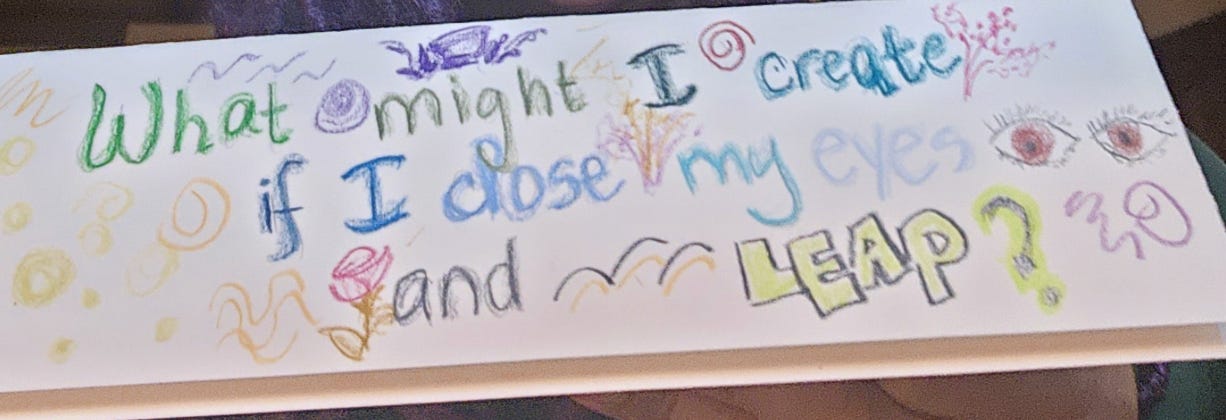 What might I create
if I close my eyes
and LEAP?